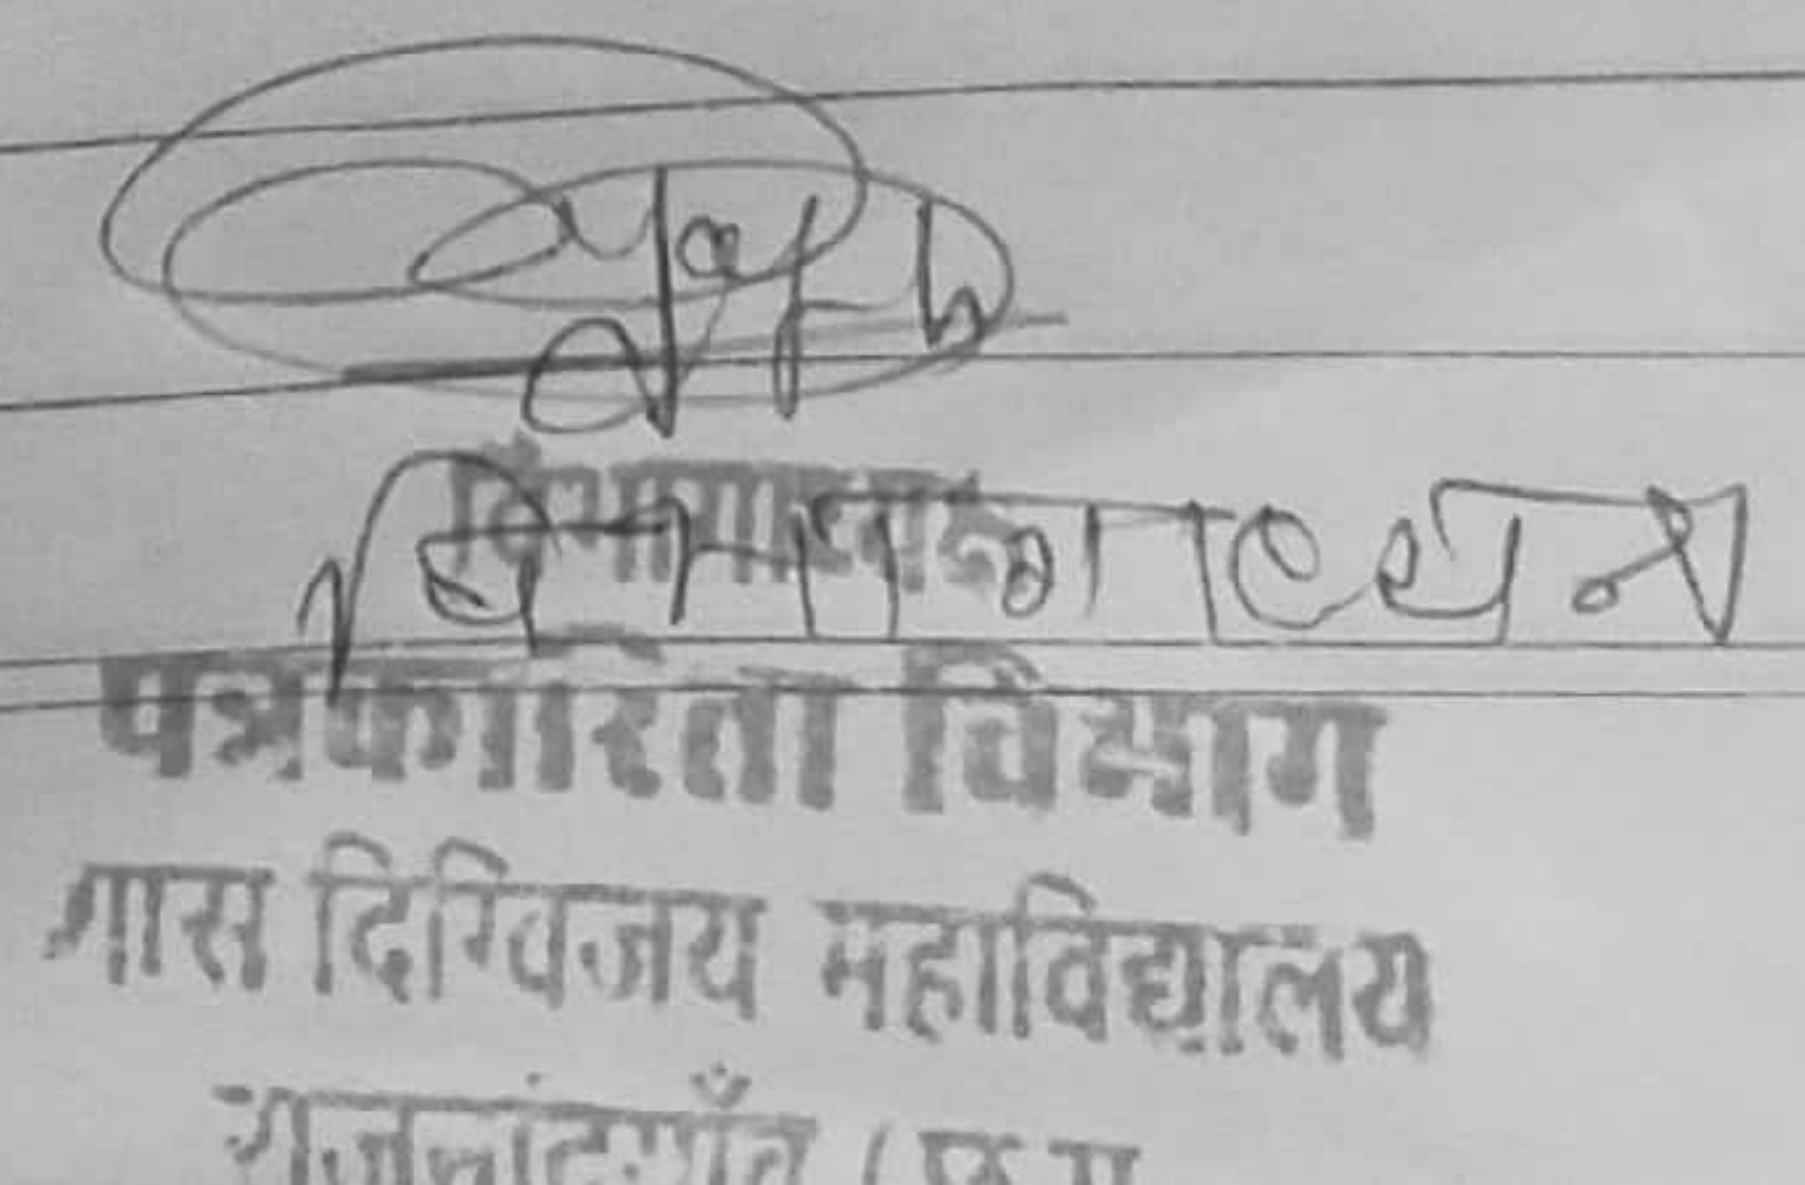 विभागाध्यक्ष
पत्रकारिता विभाग
शास दिग्विजय महाविद्यालय
राजनांदगाँव (छ.ग.